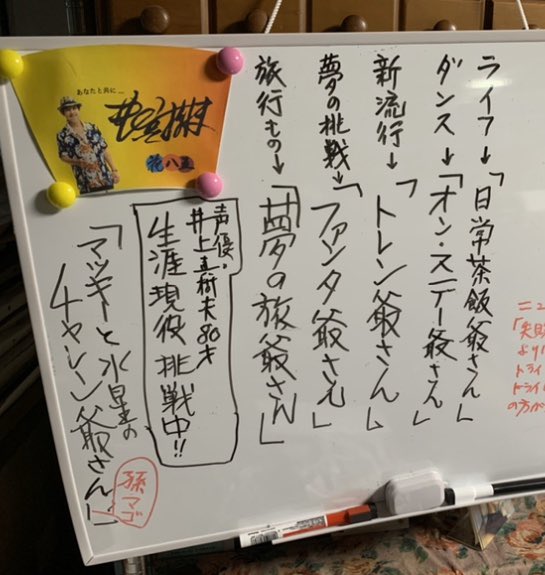 「失敗
より
トライ
ドライ
の方が
ライフ→「日常茶飯爺さん」
ダンス→「オン・ステー爺さん」
新流行→「トレン爺さん」
夢の挑戦→「ファンタ爺さん」
旅行もの→「夢の旅爺さん」
声優・
井上真樹夫80才
生涯現役挑戦中!!
「マッキーと水星の
チャレン爺さん」
孫マゴ
あなたと共に…